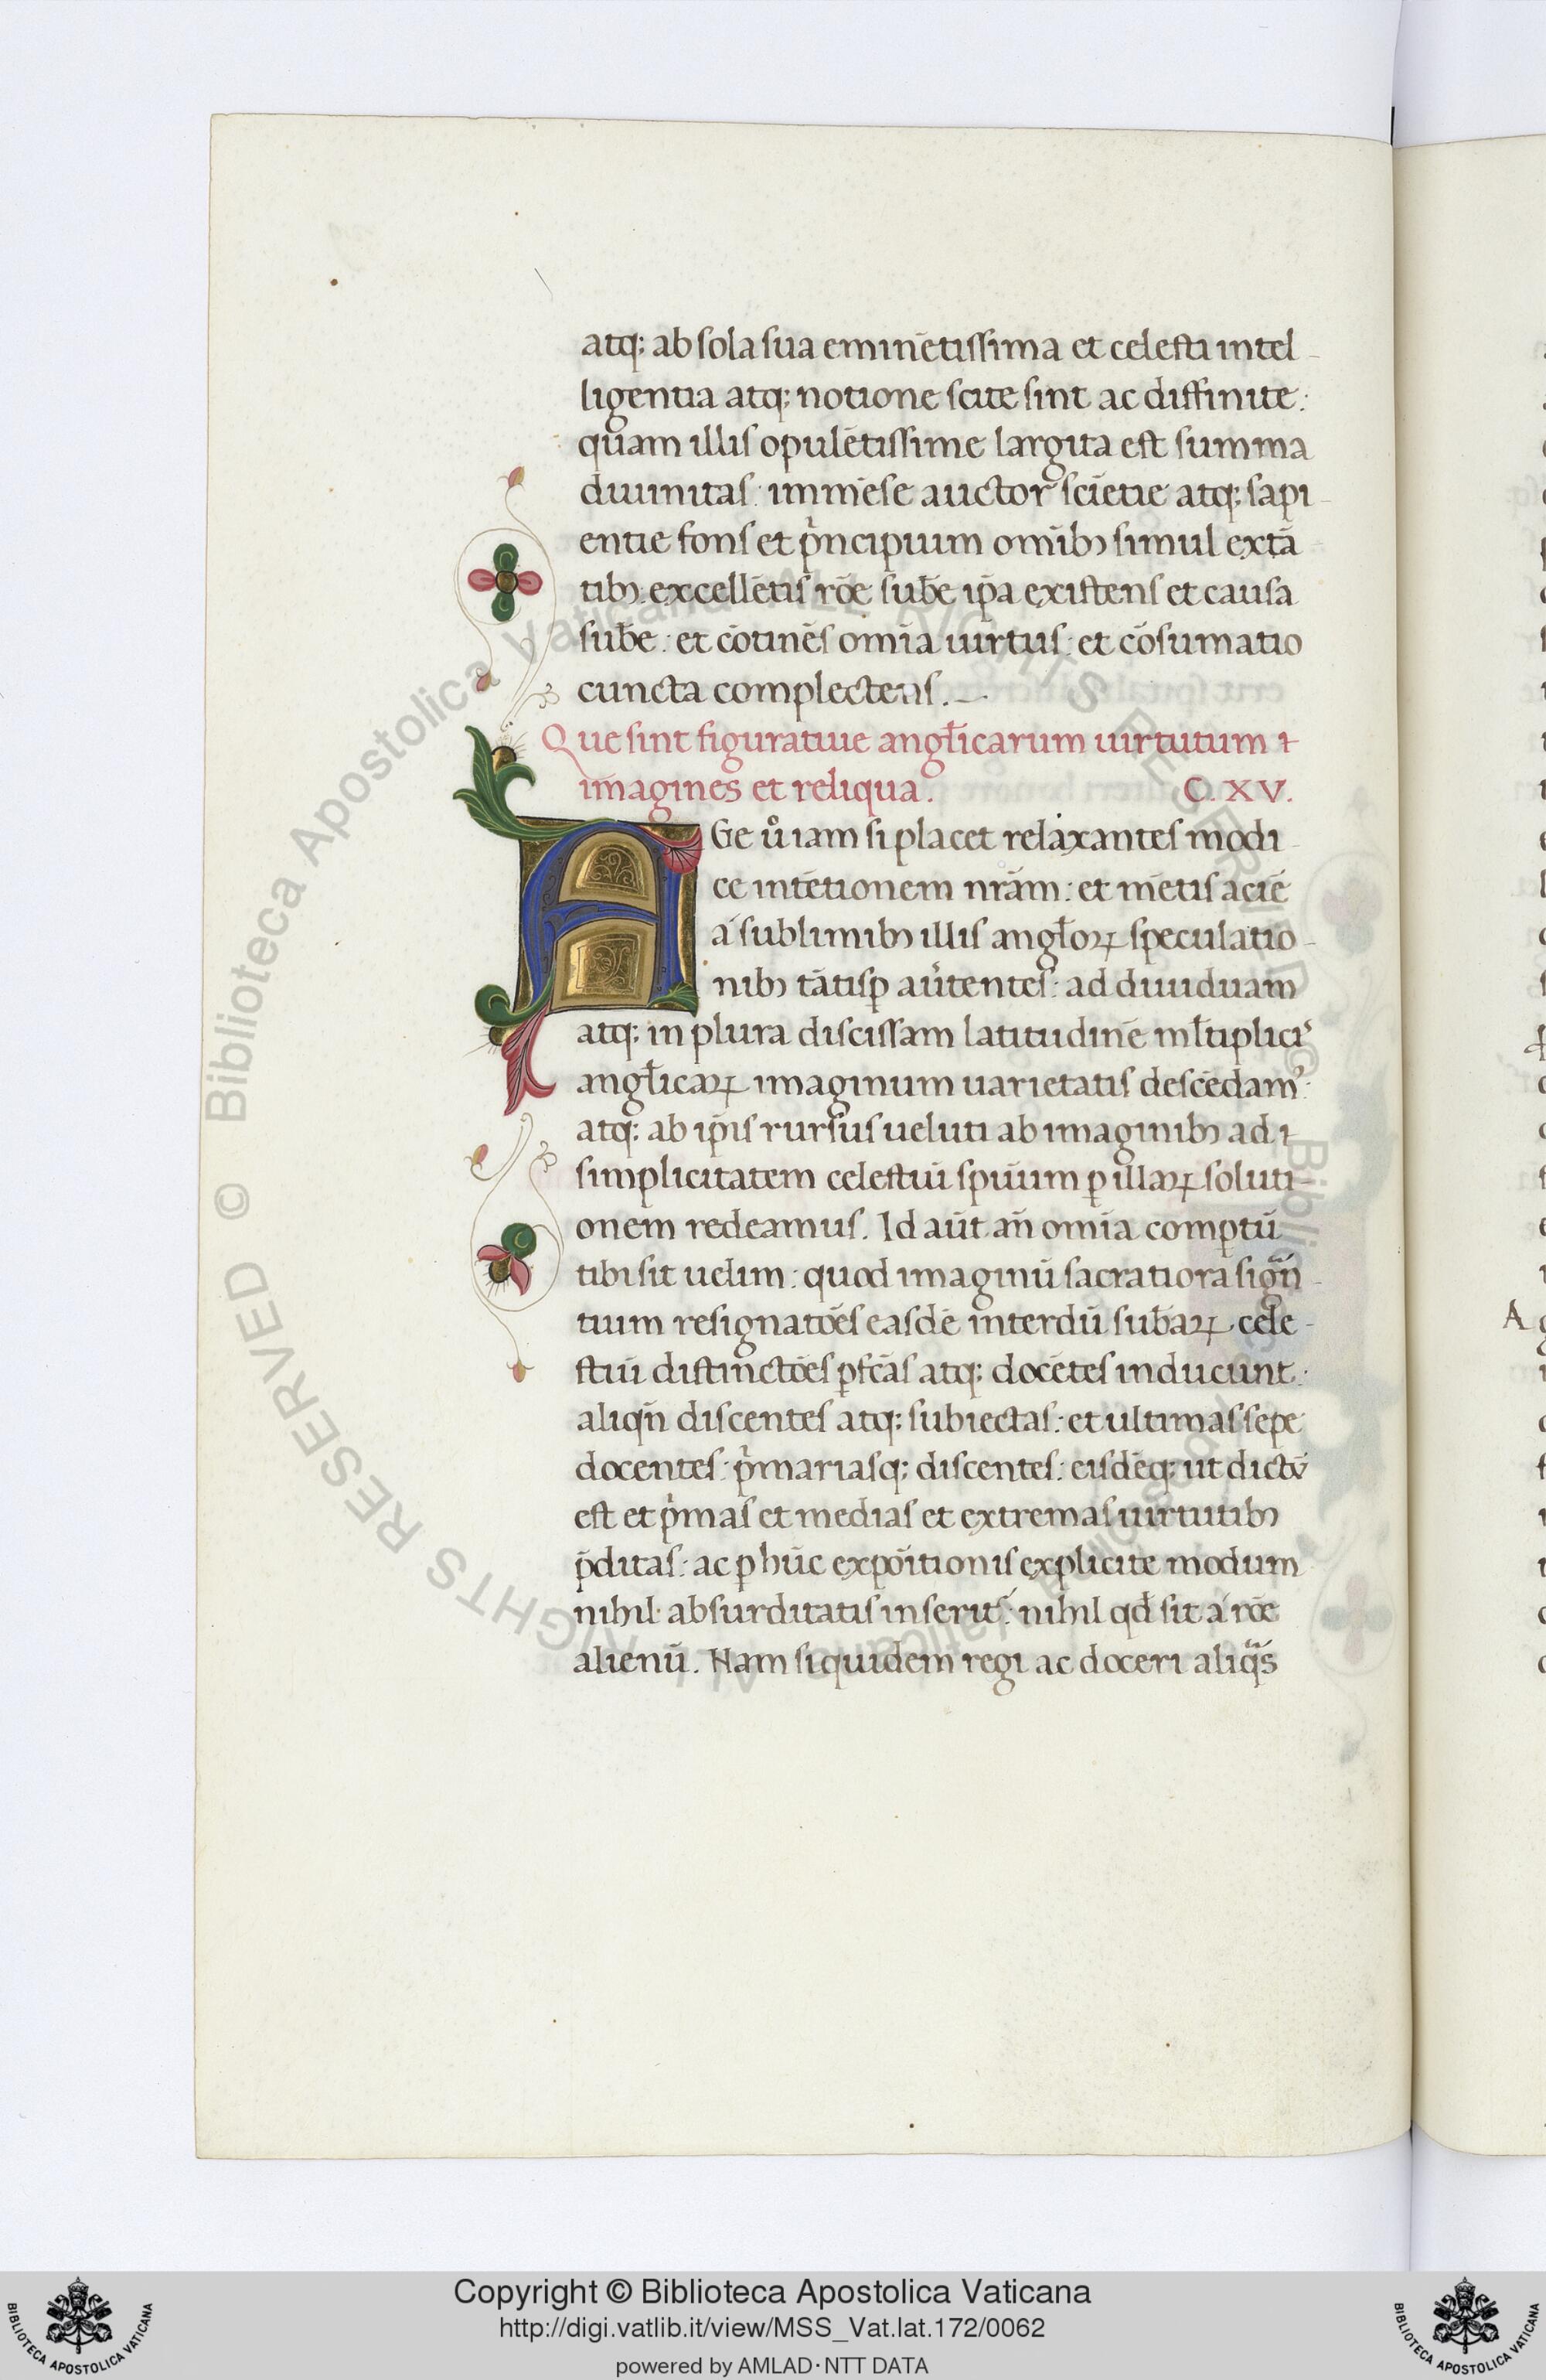 atq; ab sola sua eminētissima et celesti intel-
ligentia atq; notione scite sint ac diffinite:
quam illis opulētissime largita est summa
diuinitas: immēse auctor scīetie atq; sapi-
entie fons et pͥncipium omībꝫ simul extā
tibꝫ excellētis rōe sub̄e ip̄a existens et causa
sub̄e: et cōtinēs omīa uirtus: et cōsumatio
cuncta complectens.—
Que sint figuratiue angl̄icarum uirtutum
imagines et reliqua. C. XV.
AGe uͦ iam si placet relaxantes modi-
ce intētionem nrām: et mētis aciē
á sublimibꝫ illis angl̄oꝝ speculatio-
nibꝫ tātisꝑ auͥtentes: ad diuiduam
atq; in plura discissam latitudinē ml̄tiplicis
angl̄icaꝝ imaginum uarietatis descēdam':
atq; ab ip̄is rursus ueluti ab imaginibꝫ ad
simplicitatem celestiū spūum ꝑ illaꝝ soluti-
onem redeamus. Id aūt an̄ omīa comꝑtū
tibi sit uelim: quod imaginū sacratiora sign̄-
tium resignatōes easdē interdū sub̄aꝝ cele-
stiū distinctōes ꝑfc̄as atq; docētes inducunt:
aliqn̄ discentes atq; subiectas: et ultimas sepe
docentes: pͥmariasq; discentes: eisdēq; ut dictū
est et pͥmas et medias et extremas uirtutibꝫ
p̄ditas: ac ꝑ hūc expōitionis explicite modum
nihil absurditatis inserit': nihil qd̄ sit á rōe
alienū. Nam siquidem regi ac doceri aliqᵃ̄s
© Biblioteca Apostolica Vaticana ALL RIGHTS RESERVED
© Biblioteca Apostolica Vaticana ALL RIGHTS RESERVED
Copyright © Biblioteca Apostolica Vaticana
http://digi.vatlib.it/view/MSS_Vat.lat.172/0062
powered by AMLAD·NTT DATA
BIBLIOTECA APOSTOLICA VATICANA
BIBLIOTECA APOSTOLICA VATICANA